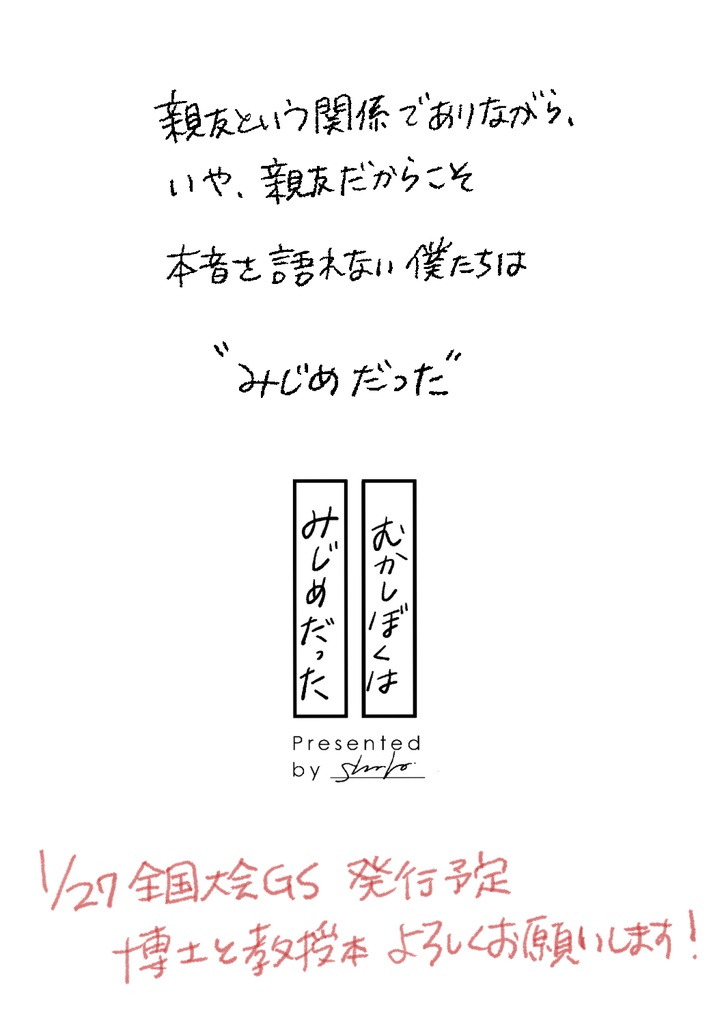 親友という関係でありながら、
いや、親友だからこそ
本音を語れない僕たちは
”みじめだった”
むかしぼくは
みじめだった
Presented
by
1/27 全国大会GS 発行予定
博士と教授本 よろしくお願いします!